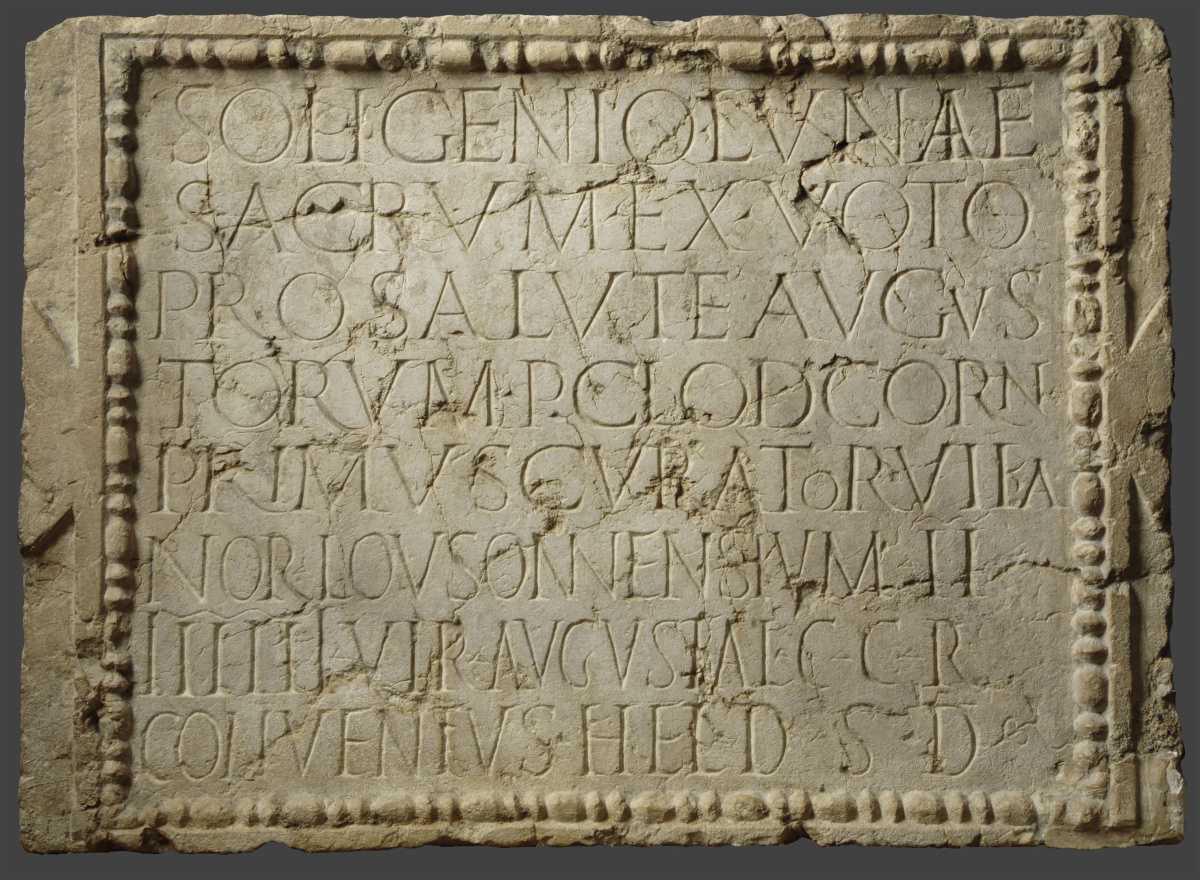 SOLI GENIO LVNAE
SACRVM·EX·VOTO
PRO SALVTE AVGVS
TORVM·P·CLOD CORN
PRIMVS CVRATOR VIKA
NOR LOVSONNENSIVM II
IIIIII·VIR·AVGVSTAL·C·C·R
CONVENTVS·HEL D S D